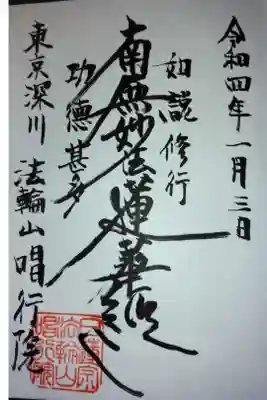 令和四年一月三日
如説修行
南無妙法蓮華経
功徳甚多
東京深川
法輪山唱行院